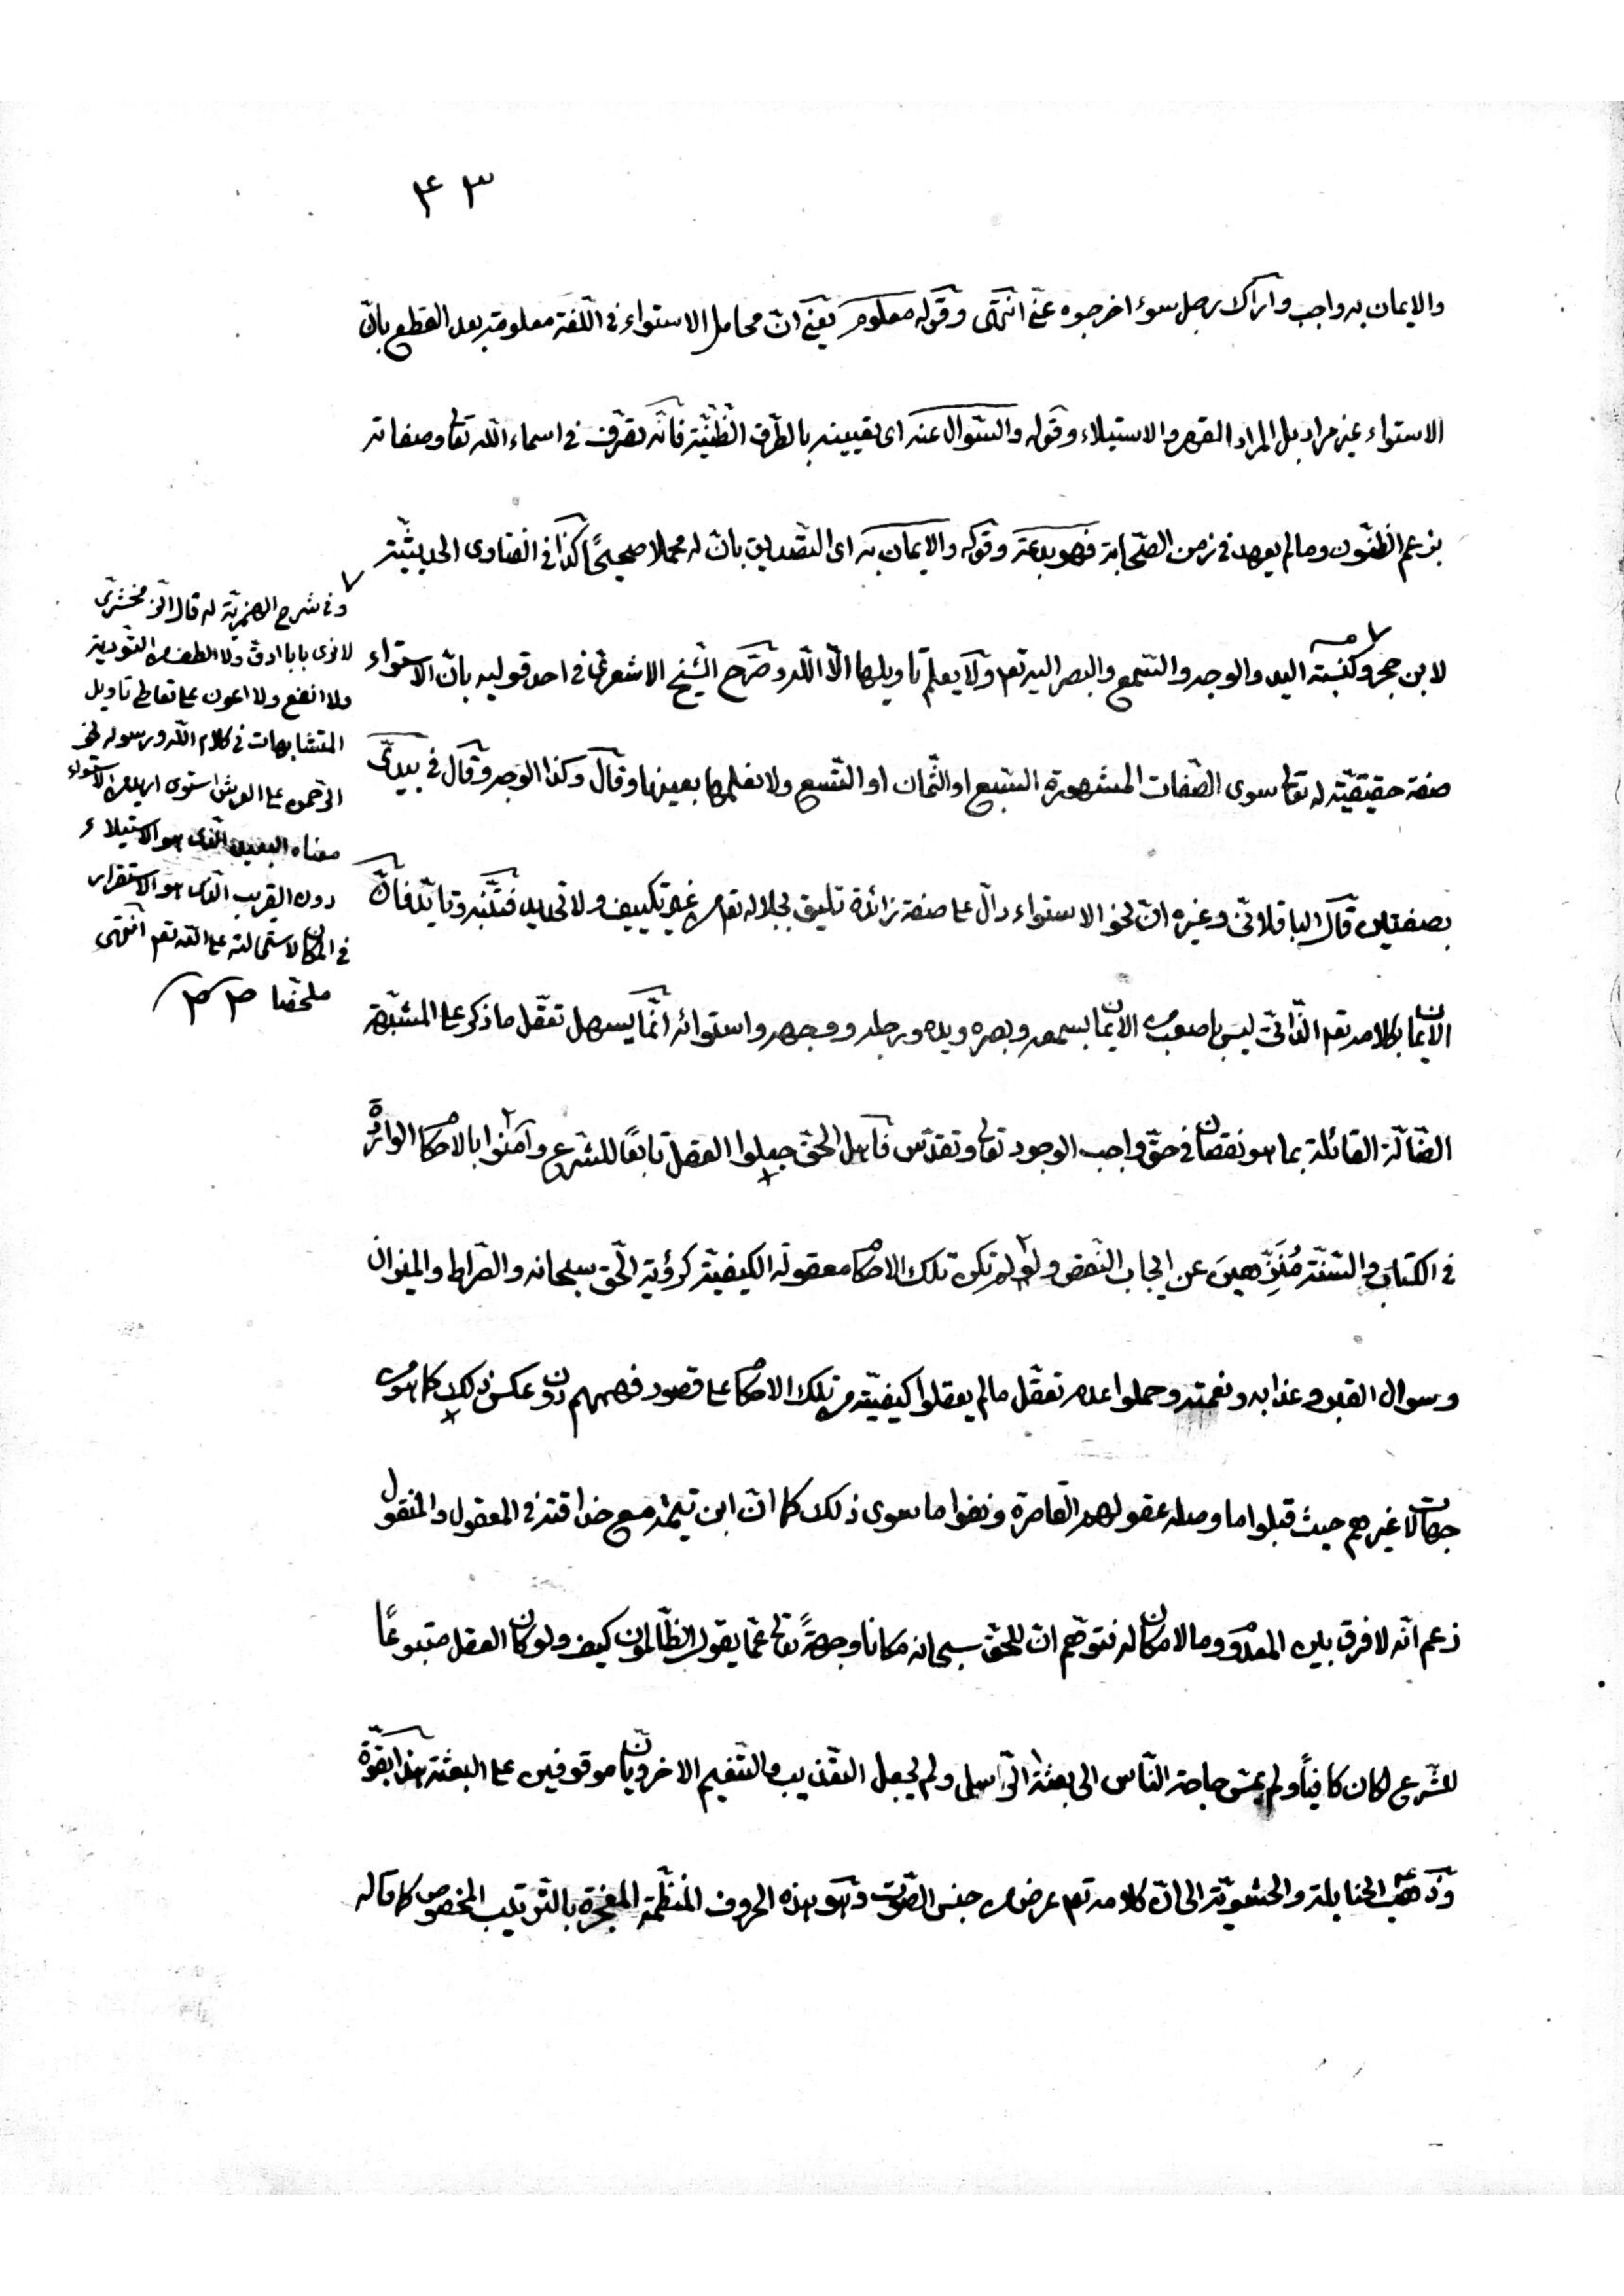 ٤٣
والايمان به واجب واراك رجل سوء اخرجوه عنّي انتهى وقوله معلوم يعني انّ محامل الاستواء في اللّغة معلومة بعد القطع بانّ
الاستواء غير مراد بل المراد القهر والاستيلاء وقوله والسّؤال عنه اى تعيينه بالطّرق الظّنّيّة فانّه تصّرف في اسماء اللّه تعا وصفاته
بزعم الظّنون ومالم يعهد في زمن الصّحابة فهو بدعة وقوله والايمان به اى التّصديق بانّ له محملا صحيحًا كذا في الفتاوى الحديثيّة
لابن حجر وكنسبة اليد والوجه والسّمع والبصر اليه تعم ولا يعلم تاويلها الّا اللّه وصرّح الشّيخ الاشعرىّ في احد قوليه بانّ الاستواء
صفة حقيقيّة له تعا سوى الصّفات المشهورة السّبع او الثّمان او التّسع ولا نعلمها بعينها وقال وكذا الوجه وقال في بيدىّ
بصفتين قال الباقلانىّ وغيره انّ نحو الاستواء دالّ على صفة زائدة تليق بجلاله تعم من غير تكييف ولا تحديد فتنبّه وتايّد فانّ
الايمان بكلامه تعم الذّاتىّ ليس باصعب من الايمان بسمعه وبصره ويده ورجله ووجهه واستوائه انّما يسهل تعقّل ما ذكر على المشبّهة
الضّالّة القائلة بما هو نقصان في حقّ واجب الوجود تعا وتقدّس فاهل الحقّ جعلوا العقل تابعًا للشّرع وآمنوا بالاحكام الواردة
في الكتاب والسّنّة مُنَزِّهينَ عن ايجاب النّقص ولو لم تكن تلك الاحكام معقولة الكيفيّة كرؤية الحقّ سبحانه والصّراط والميزان
وسوال القبر وعذابه ونعمته وحملوا عدم تعقّل مالم يعقلوا كيفيّته من تلك الاحكام على قصور فهمهم دون عكس ذلك كما هو من
جهالات غيرهم حيث قبلوا ما وصله عقولهم القاصرة ونفوا ما سوى ذلك كما انّ ابن تيميّة مع حذاقته في المعقول والمنقول
زعم انّه لا فرق بين المعدوم وما لا مكان له فتوهّم انّ للحقّ سبحانه مكانا وجهةً تعا عمّا يقول الظّالمون كيف ولو كان العقل متبوعًا
للشّرع لكان كافيًا ولم يمسّ حاجة النّاس الى بعثة الرّسل ولم يجعل التّعذيب والتّنعيم الاخرويّان موقوفين على البعثة هذا بقوّة
وذهب الحنابلة والحشويّة الى انّ كلامه تعم عرض من جنس الصّوت وهو هذه الحروف المنظّمة بالتّرتيب المخصوص كما قاله
وفي شرح الهمزيّة له قال الزّمخشرىّ
لا نرى بابا ادقّ ولا الطف من التّورية
ولا انفع ولا اعون على تعاطى تاويل
المتشابهات في كلام اللّه ورسوله نحو
الرّحمن على العرش استوى اريد من الاستواء
معناه البعيد الّذى هو الاستيلاء
دون القريب الّذى هو الاستقرار
في المكان لاستحالته على اللّه تعم انتهى
ملخّصا